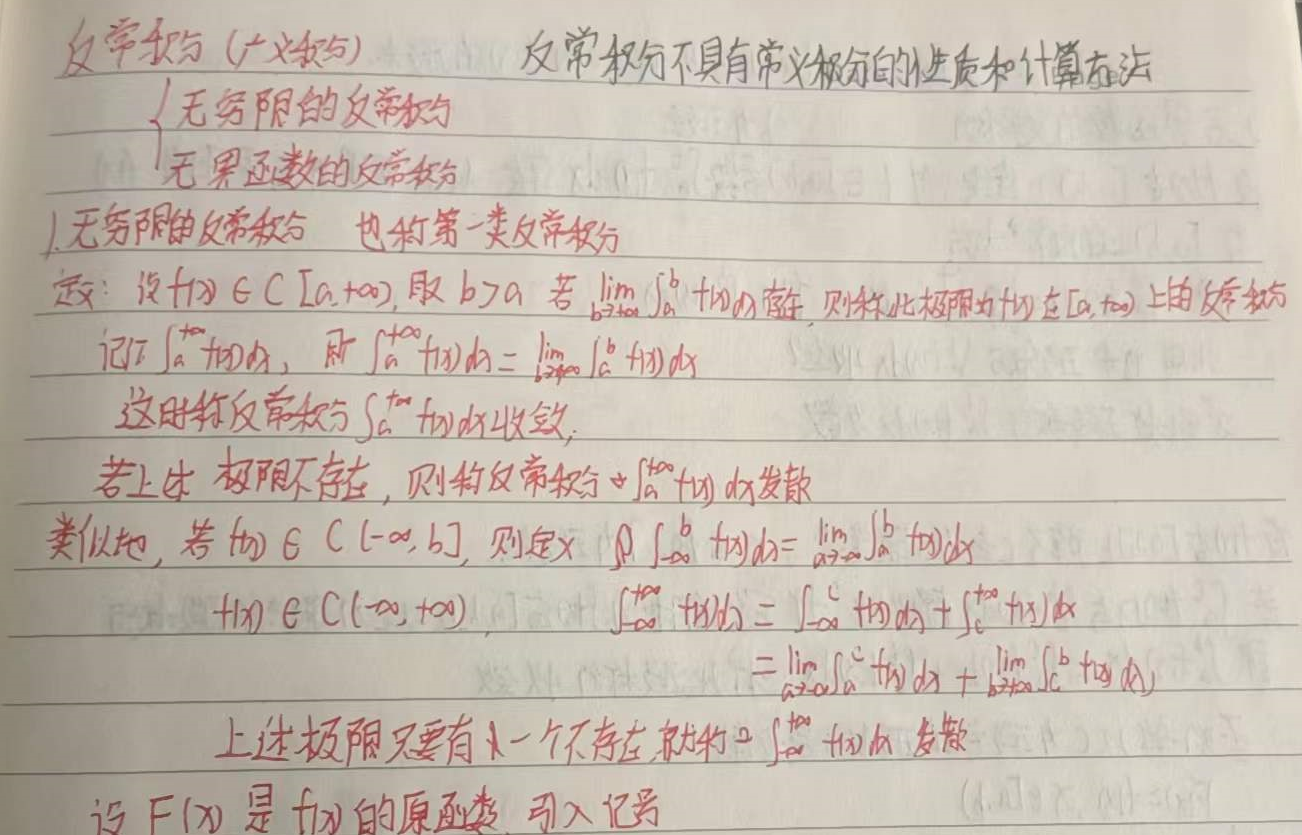 反常积分(广义积分) 反常积分不具有常义积分的性质和计算方法
{ 无穷限的反常积分
无界函数的反常积分
1.无穷限的反常积分 也称第一类反常积分
定义: 设 f(x) ∈ C [a,+∞), 取 b>a 若 lim_{b→+∞} ∫_a^b f(x)dx 存在, 则称此极限为f(x)在[a,+∞)上的反常积分
记作 ∫_a^{+∞} f(x)dx, 即 ∫_a^{+∞} f(x)dx = lim_{b→+∞} ∫_a^b f(x)dx
这时称反常积分 ∫_a^{+∞} f(x)dx 收敛;
若上述 极限不存在, 则称反常积分 ∫_a^{+∞} f(x) dx 发散
类似地, 若 f(x) ∈ C (-∞, b], 则定义 ∫_{-∞}^b f(x)dx = lim_{a→-∞} ∫_a^b f(x)dx
f(x) ∈ C(-∞, +∞), ∫_{-∞}^{+∞} f(x)dx = ∫_{-∞}^c f(x)dx + ∫_c^{+∞} f(x)dx
= lim_{a→-∞} ∫_a^c f(x)dx + lim_{b→+∞} ∫_c^b f(x)dx
上述极限只要有一个不存在, 就称 ∫_{-∞}^{+∞} f(x)dx 发散
设 F(x) 是 f(x) 的原函数, 引入记号